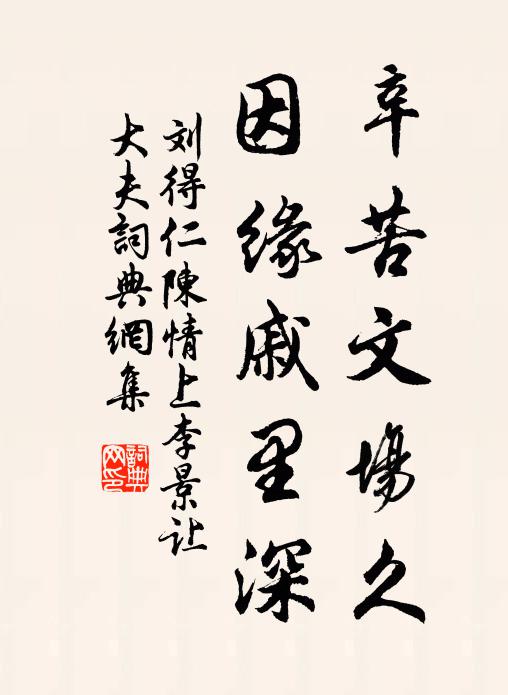 辛苦文場久
因缘戚里深
刘得仁陳情上李景让
大夫詞典網集
詞典网印